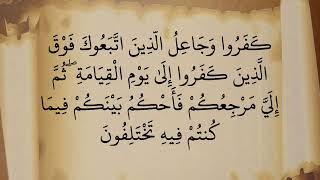 كَفَرُوا وَجَاعِلُ الَّذِينَ اتَّبَعُوكَ فَوْقَ
الَّذِينَ كَفَرُوا إِلَىٰ يَوْمِ الْقِيَامَةِ ۖ ثُمَّ
إِلَيَّ مَرْجِعُكُمْ فَأَحْكُمُ بَيْنَكُمْ فِيمَا
كُنتُمْ فِيهِ تَخْتَلِفُونَ